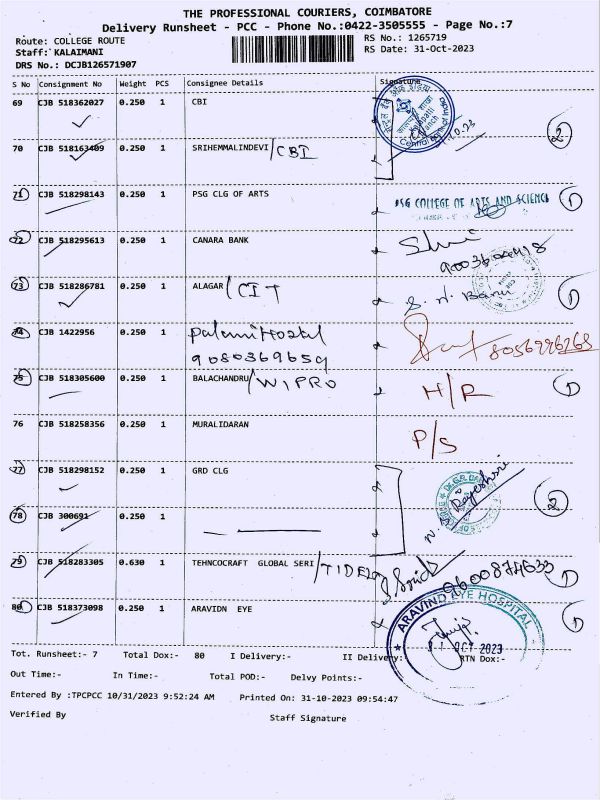 THE PROFESSIONAL COURIERS, COIMBATORE
Delivery Runsheet - PCC - Phone No.:0422-3505555 - Page No.:7
Route: COLLEGE ROUTE
RS No.: 1265719
Staff: KALAIMANI
RS Date: 31-Oct-2023
DRS No.: DCJB126571907
S No Consignment No Weight PCS Consignee Details Signature
69 CJB 518362027 0.250 1 CBI
70 CJB 518163409 0.250 1 SRIHEMMALINDEVI /CBI 2
71 CJB 518298143 0.250 1 PSG CLG OF ARTS PSG COLLEGE OF ARTS AND SCIENCE 1
72 CJB 518295613 0.250 1 CANARA BANK
73 CJB 518286781 0.250 1 ALAGAR /CIT S. N. Banu 1
74 CJB 1422956 0.250 1 Palani Hostel 8056996268
9080369659
75 CJB 518305600 0.250 1 BALACHANDRU /WIPRO H/R 1
76 CJB 518258356 0.250 1 MURALIDARAN P/S
77 CJB 518298152 0.250 1 GRD CLG 2
78 CJB 300691 0.250 1
79 CJB 518283305 0.630 1 TEHNCOCRAFT GLOBAL SERI /TIDEL 9600874633 1
80 CJB 518373098 0.250 1 ARAVIDN EYE 1
ARAVIND EYE HOSPITAL
31 OCT 2023
Tot. Runsheet:- 7 Total Dox:- 80 I Delivery:- II Delivery:- RTN Dox:-
Out Time:- In Time:- Total POD:- Delvy Points:-
Entered By :TPCPCC 10/31/2023 9:52:24 AM Printed On: 31-10-2023 09:54:47
Verified By Staff Signature